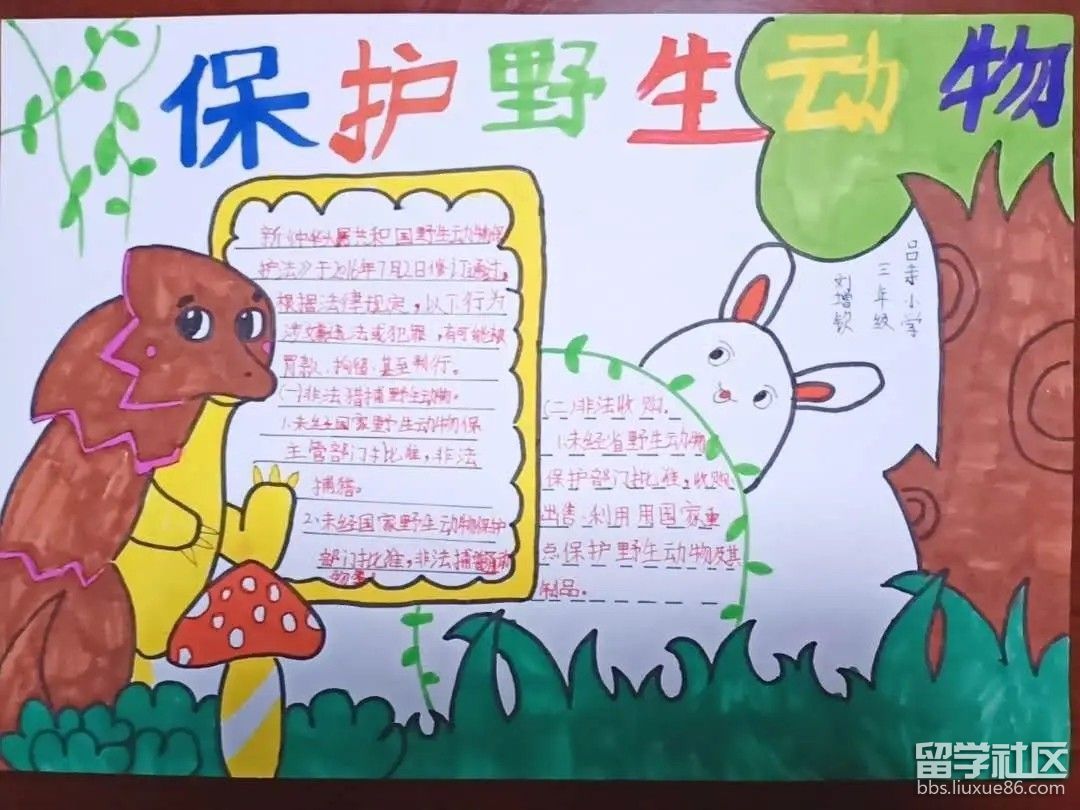 保护野生动物
新《中华人民共和国野生动物保
护法》于2016年7月2日修订通过,
根据法律规定,以下行为
涉嫌违法或犯罪,有可能被
罚款、拘留、甚至判行。
(一)非法猎捕野生动物。
1.未经国家野生动物保
主管部门批准,非法
捕猎。
2.未经国家野生动物保护
部门批准,非法捕
(二)非法收购。
1.未经省野生动物
保护部门批准,收购
出售、利用用国家重
点保护野生动物及其
制品。
小学
三年级
刘增钦
留学社区
bbs.liuxue86.com